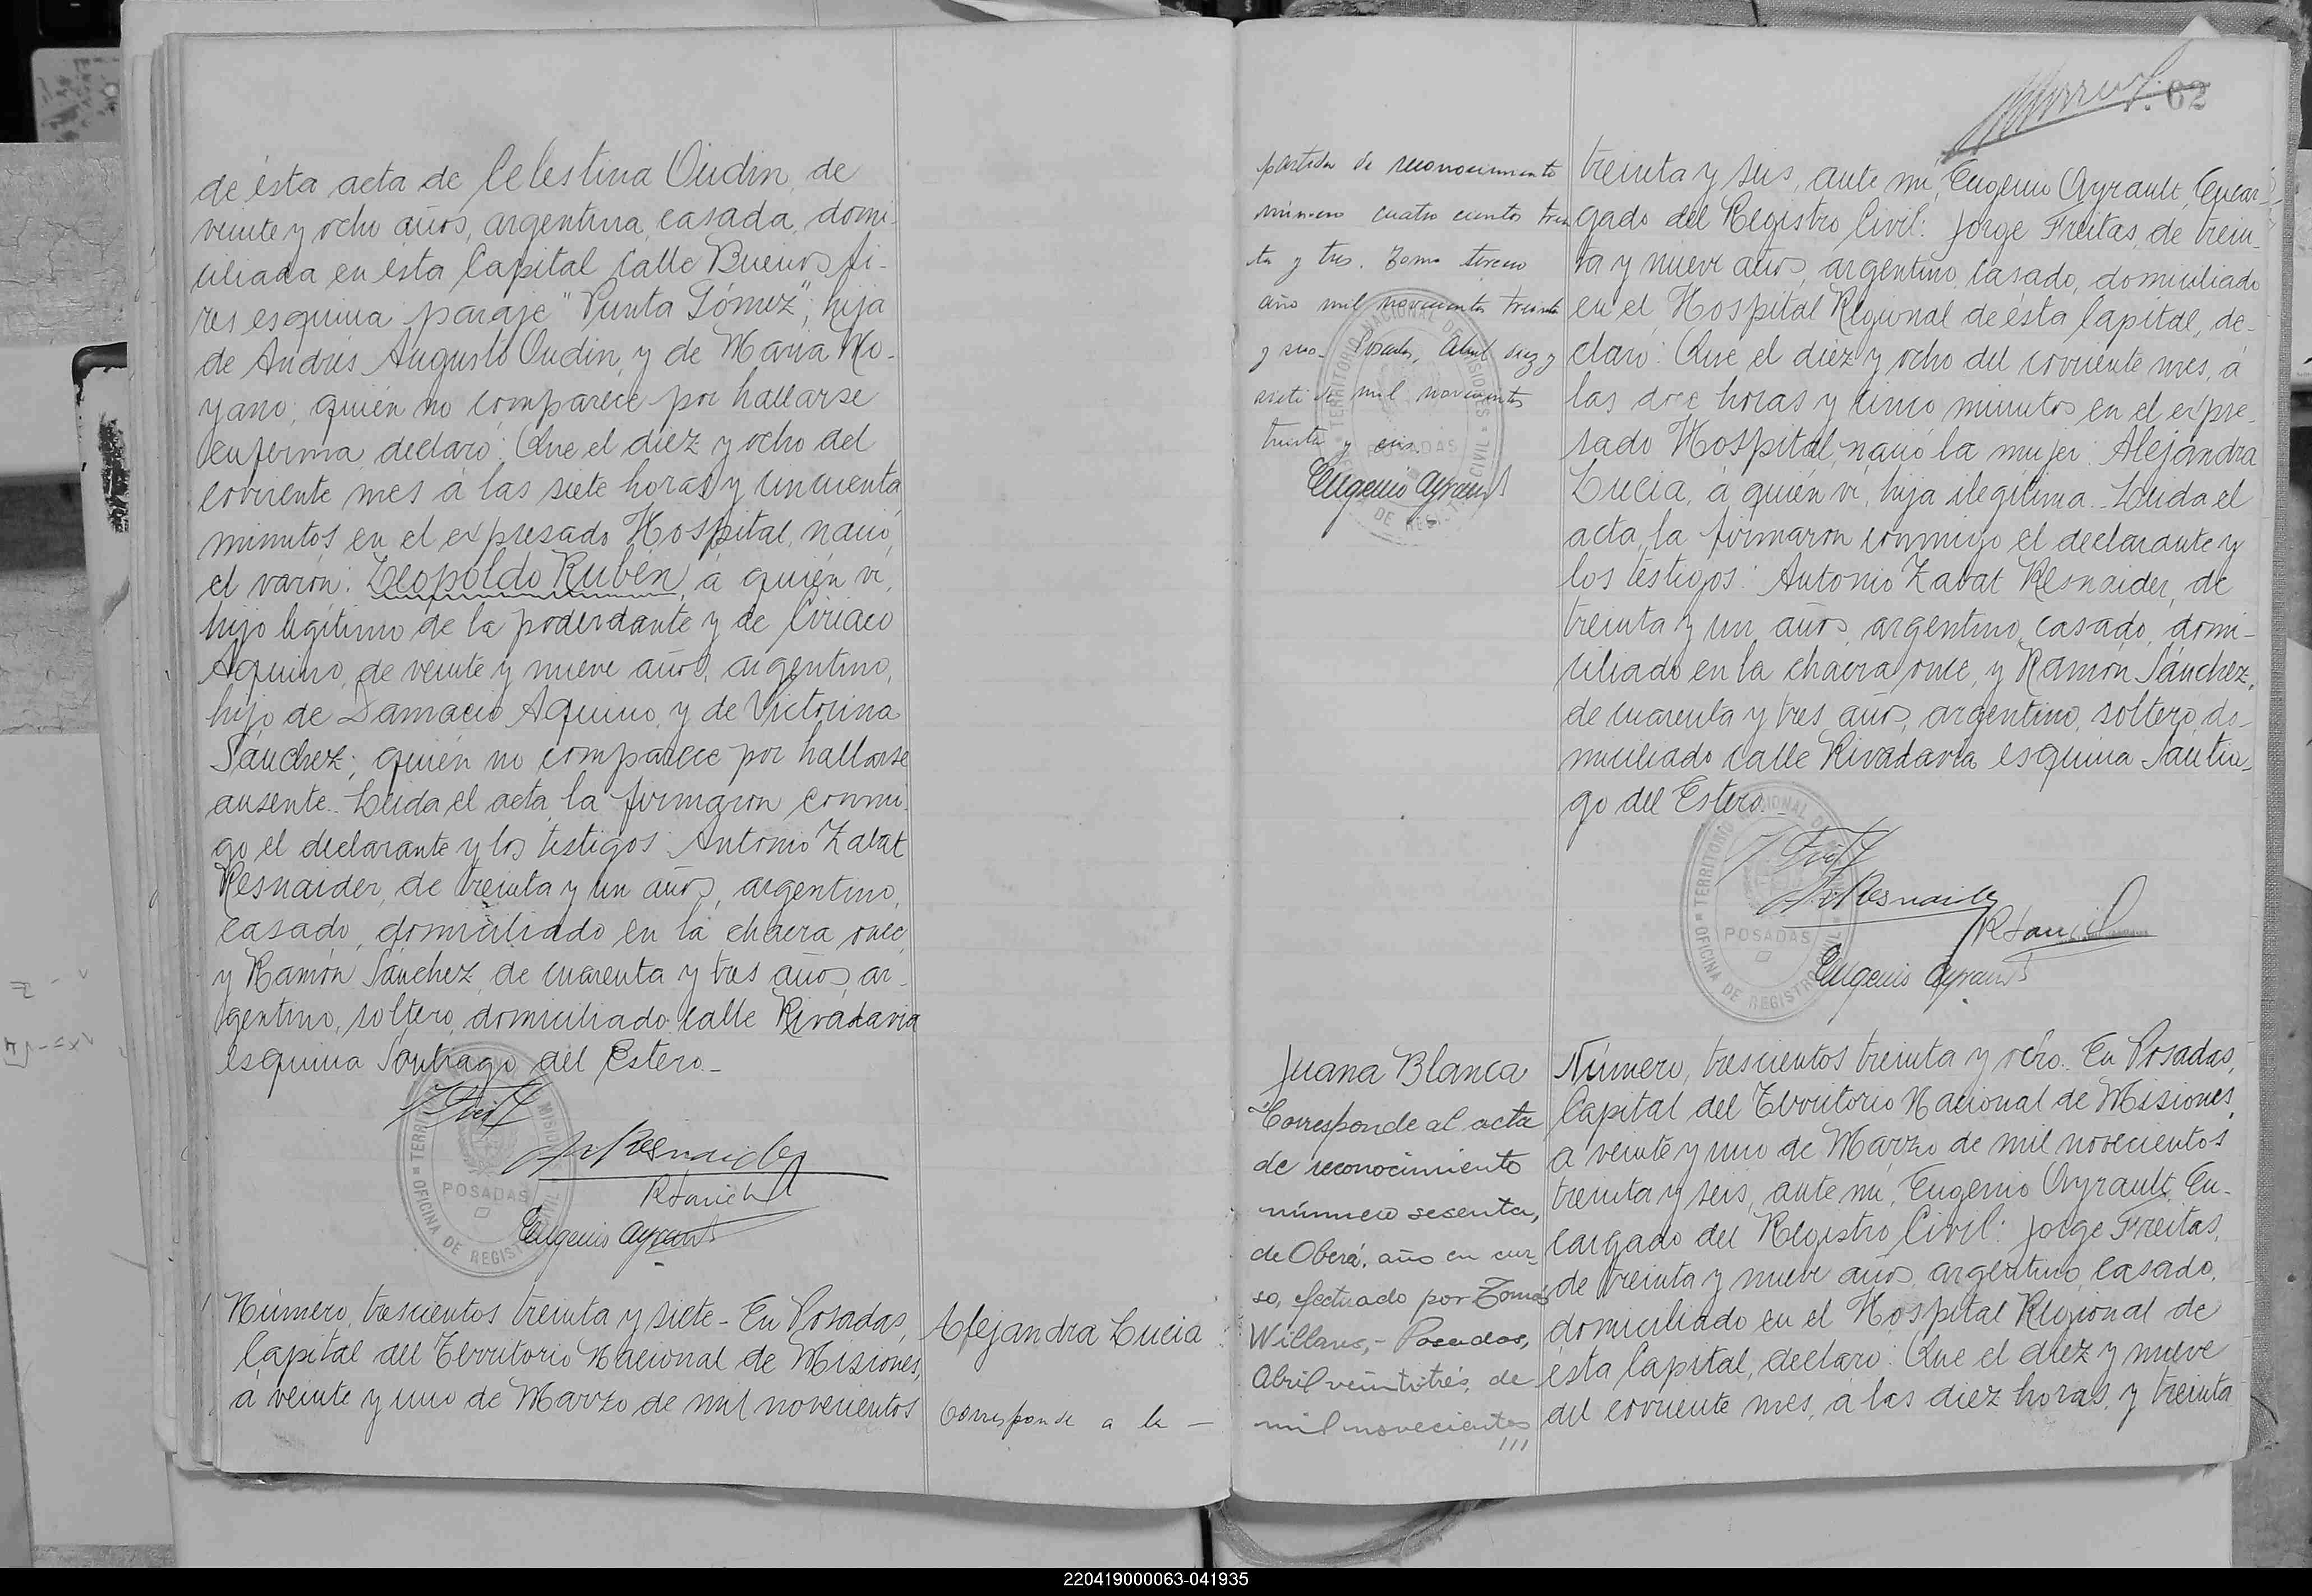 de ésta acta de Celestina Oudin, de
veinte y ocho años, argentina, casada, domi-
ciliada en ésta Capital calle Buenos Ai-
res esquina paraje "Punta Gómez"; hija
de Andrés Augusto Oudin, y de María Mo-
yano; quién no comparece por hallarse
enferma, declaró: Que el diez y ocho del
corriente mes á las siete horas y cincuenta
minutos en el expresado Hospital, nació,
el varón: Leopoldo Rubén, á quién vi,
hijo legítimo de la poderdante y de Ciriaco
Aquino, de veinte y nueve años, argentino,
hijo de Damacio Aquino, y de Victorina
Sánchez; quién no comparece por hallarse
ausente.- Leida el acta, la firmaron conmi-
go el declarante y los testigos: Antonio Zabat
Resnaider, de treinta y un años, argentino,
casado, domiciliado en la chacra once,
y Ramón Sánchez, de cuarenta y tres años, ar-
gentino, soltero, domiciliado calle Rivadavia
esquina Santiago del Estero.-
POSADAS
Eugenio Ayrault
Número, trescientos treinta y siete.- En Posadas,
Capital del Territorio Nacional de Misiones,
á veinte y uno de Marzo de mil novecientos
Alejandra Lucia
Corresponde a la -
partida de reconocimiento
número cuatro cientos trein
ta y tres. Tomo tercero
año mil novecientos treinta
y seis. Posadas, Abril diez y
siete de mil novecientos
treinta y seis.
Eugenio Ayrault
TERRITORIO NACIONAL DE MISIONES
POSADAS
62
treinta y seis, ante mi, Eugenio Ayrault, Encar-
gado del Registro Civil: Jorge Freitas, de trein-
ta y nueve años, argentino, casado, domiciliado
en el Hospital Regional de ésta Capital, de-
claró: Que el diez y ocho del corriente mes, á
las doce horas y cinco minutos en el expre-
sado Hospital, nació la mujer: Alejandra
Lucia, á quién vi, hija ilegítima.- Leida el
acta, la firmaron conmigo el declarante y
los testigos: Antonio Zabat Resnaider, de
treinta y un años, argentino, casado, domi-
ciliado en la chacra once, y Ramón Sánchez,
de cuarenta y tres años, argentino, soltero, do-
miciliado calle Rivadavia esquina Santia-
go del Estero.-
POSADAS
OFICINA DE REGISTRO CIVIL
Eugenio Ayrault
Juana Blanca
Corresponde al acta
de reconocimiento
número sesenta,
de Oberá, año en cur-
so, efectuado por Tomás
Willans,- Posadas,
Abril veintitrés, de
mil novecientos
Número, trescientos treinta y ocho.- En Posadas,
Capital del Territorio Nacional de Misiones,
á veinte y uno de Marzo de mil novecientos
treinta y seis, ante mi, Eugenio Ayrault, En-
cargado del Registro Civil: Jorge Freitas,
de treinta y nueve años, argentino, casado,
domiciliado en el Hospital Regional de
ésta Capital, declaró: Que el diez y nueve
del corriente mes, á las diez horas, y treinta
220419000063-041935